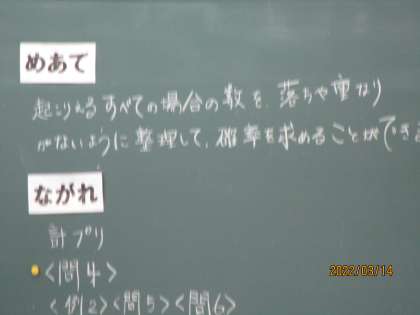 めあて
起こりえるすべての場合の数を、落ちや重なり
がないように整理して、確率を求めることができる
ながれ
計プリ
<問4>
<例2><問5><問6>
2022/03/14